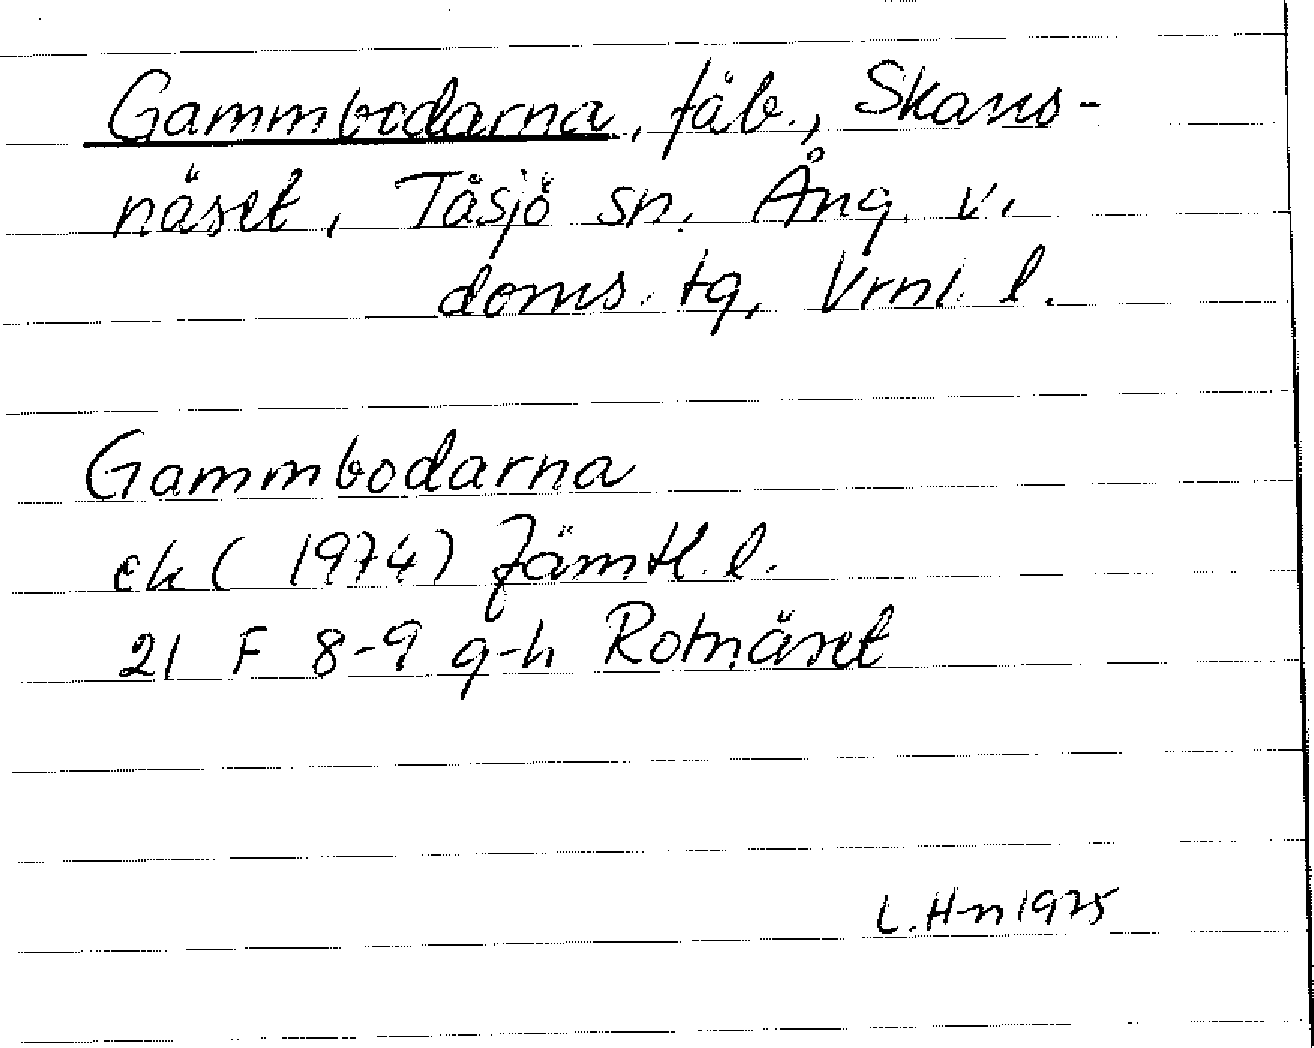 Gammbodarna, fäb., Skans-
näset, Tåsjö sn. Ång. v.
doms. tg, Vrnl. l.
Gammbodarna
ek (1974) Jämtl. l.
21 F 8-9 g-h Rotnäset
L. H-n 1975